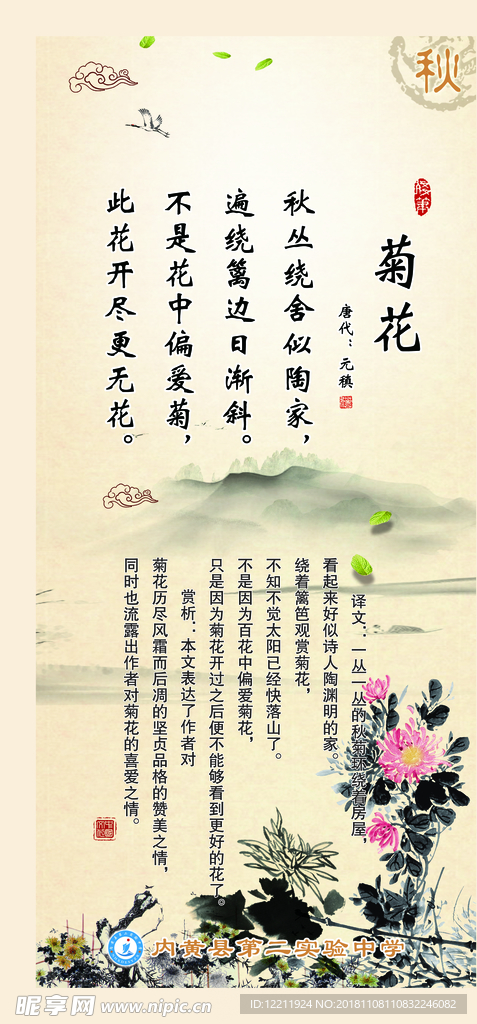 秋
菊花
唐代：元稹
秋丛绕舍似陶家，
遍绕篱边日渐斜。
不是花中偏爱菊，
此花开尽更无花。
译文：一丛一丛的秋菊环绕着房屋，
看起来好似诗人陶渊明的家。
绕着篱笆观赏菊花，
不知不觉太阳已经快落山了。
不是因为百花中偏爱菊花，
只是因为菊花开过之后便不能够看到更好的花了。
赏析：本文表达了作者对
菊花历尽风霜而后凋的坚贞品格的赞美之情，
同时也流露出作者对菊花的喜爱之情。
内黄县第二实验中学
昵享网 www.nipic.cn
ID:12211924 NO:20181108110832246082